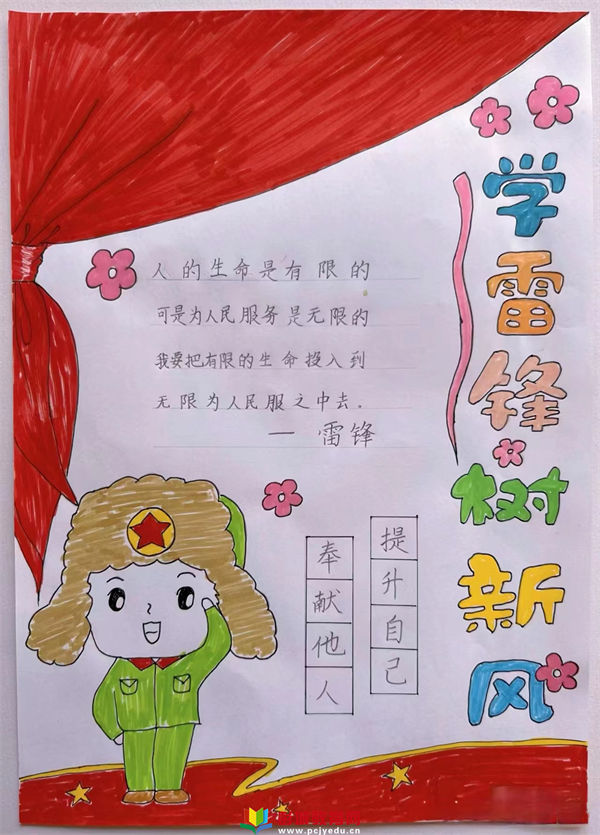 学雷锋树新风
人的生命是有限的
可是为人民服务是无限的
我要把有限的生命投入到
无限为人民服之中去.
— 雷锋
提升自己
奉献他人
www.pcjyedu.cn